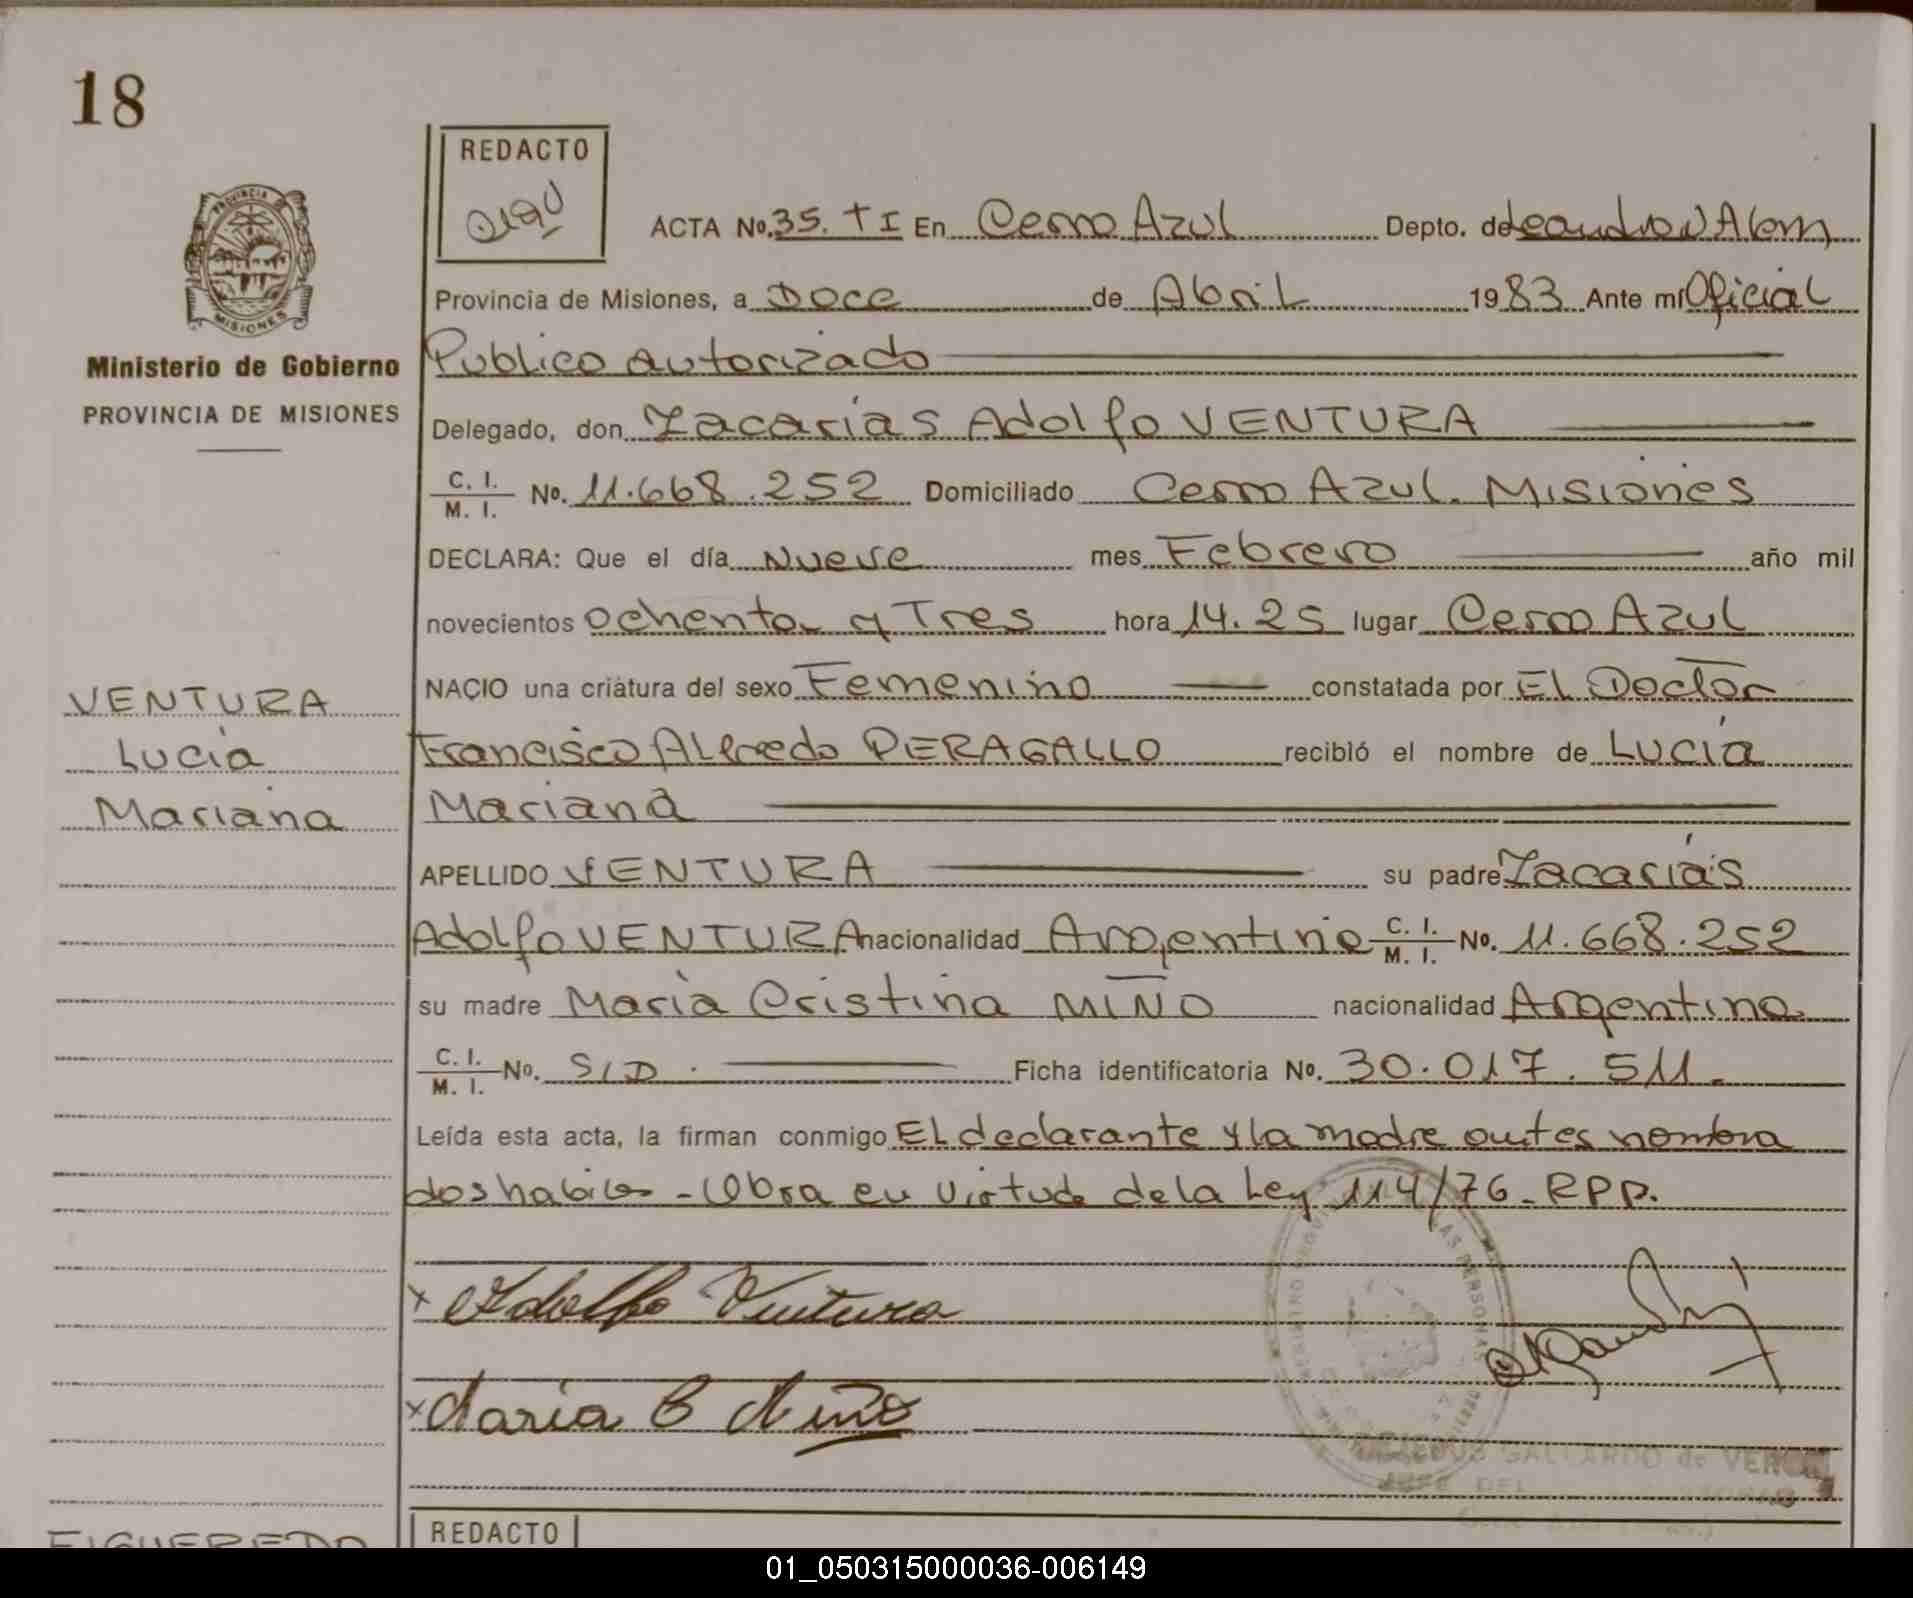 18
REDACTO
PROVINCIA DE
MISIONES
Ministerio de Gobierno
PROVINCIA DE MISIONES
ACTA No. 35. T I En Cerro Azul Depto. de Leandro N Alem
Provincia de Misiones, a Doce de Abril 1983 Ante mí Oficial
Publico autorizado
Delegado, don Zacarias Adolfo VENTURA
C. I. / M. I. No. 11.668.252 Domiciliado Cerro Azul. Misiones
DECLARA: Que el día Nueve mes Febrero año mil
novecientos ochenta y Tres hora 14.25 lugar Cerro Azul
NACIO una criatura del sexo Femenino constatada por El Doctor
Francisco Alfredo PERAGALLO recibió el nombre de Lucía
Mariana
VENTURA
Lucia
Mariana
APELLIDO VENTURA su padre Zacarías
Adolfo VENTURA nacionalidad Argentino C. I. / M. I. No. 11.668.252
su madre María Cristina MIÑO nacionalidad Argentina
C. I. / M. I. No. S/D. Ficha identificatoria No. 30.017.511.
Leída esta acta, la firman conmigo El declarante y la madre antes nombra
dos habiles - Obra en virtud de la Ley 114/76 - RPP.
x Adolfo Ventura
x Maria C Miño
GALLARDO de VERON
JEFE DEL
FIGUEREDO
REDACTO
01_050315000036-006149